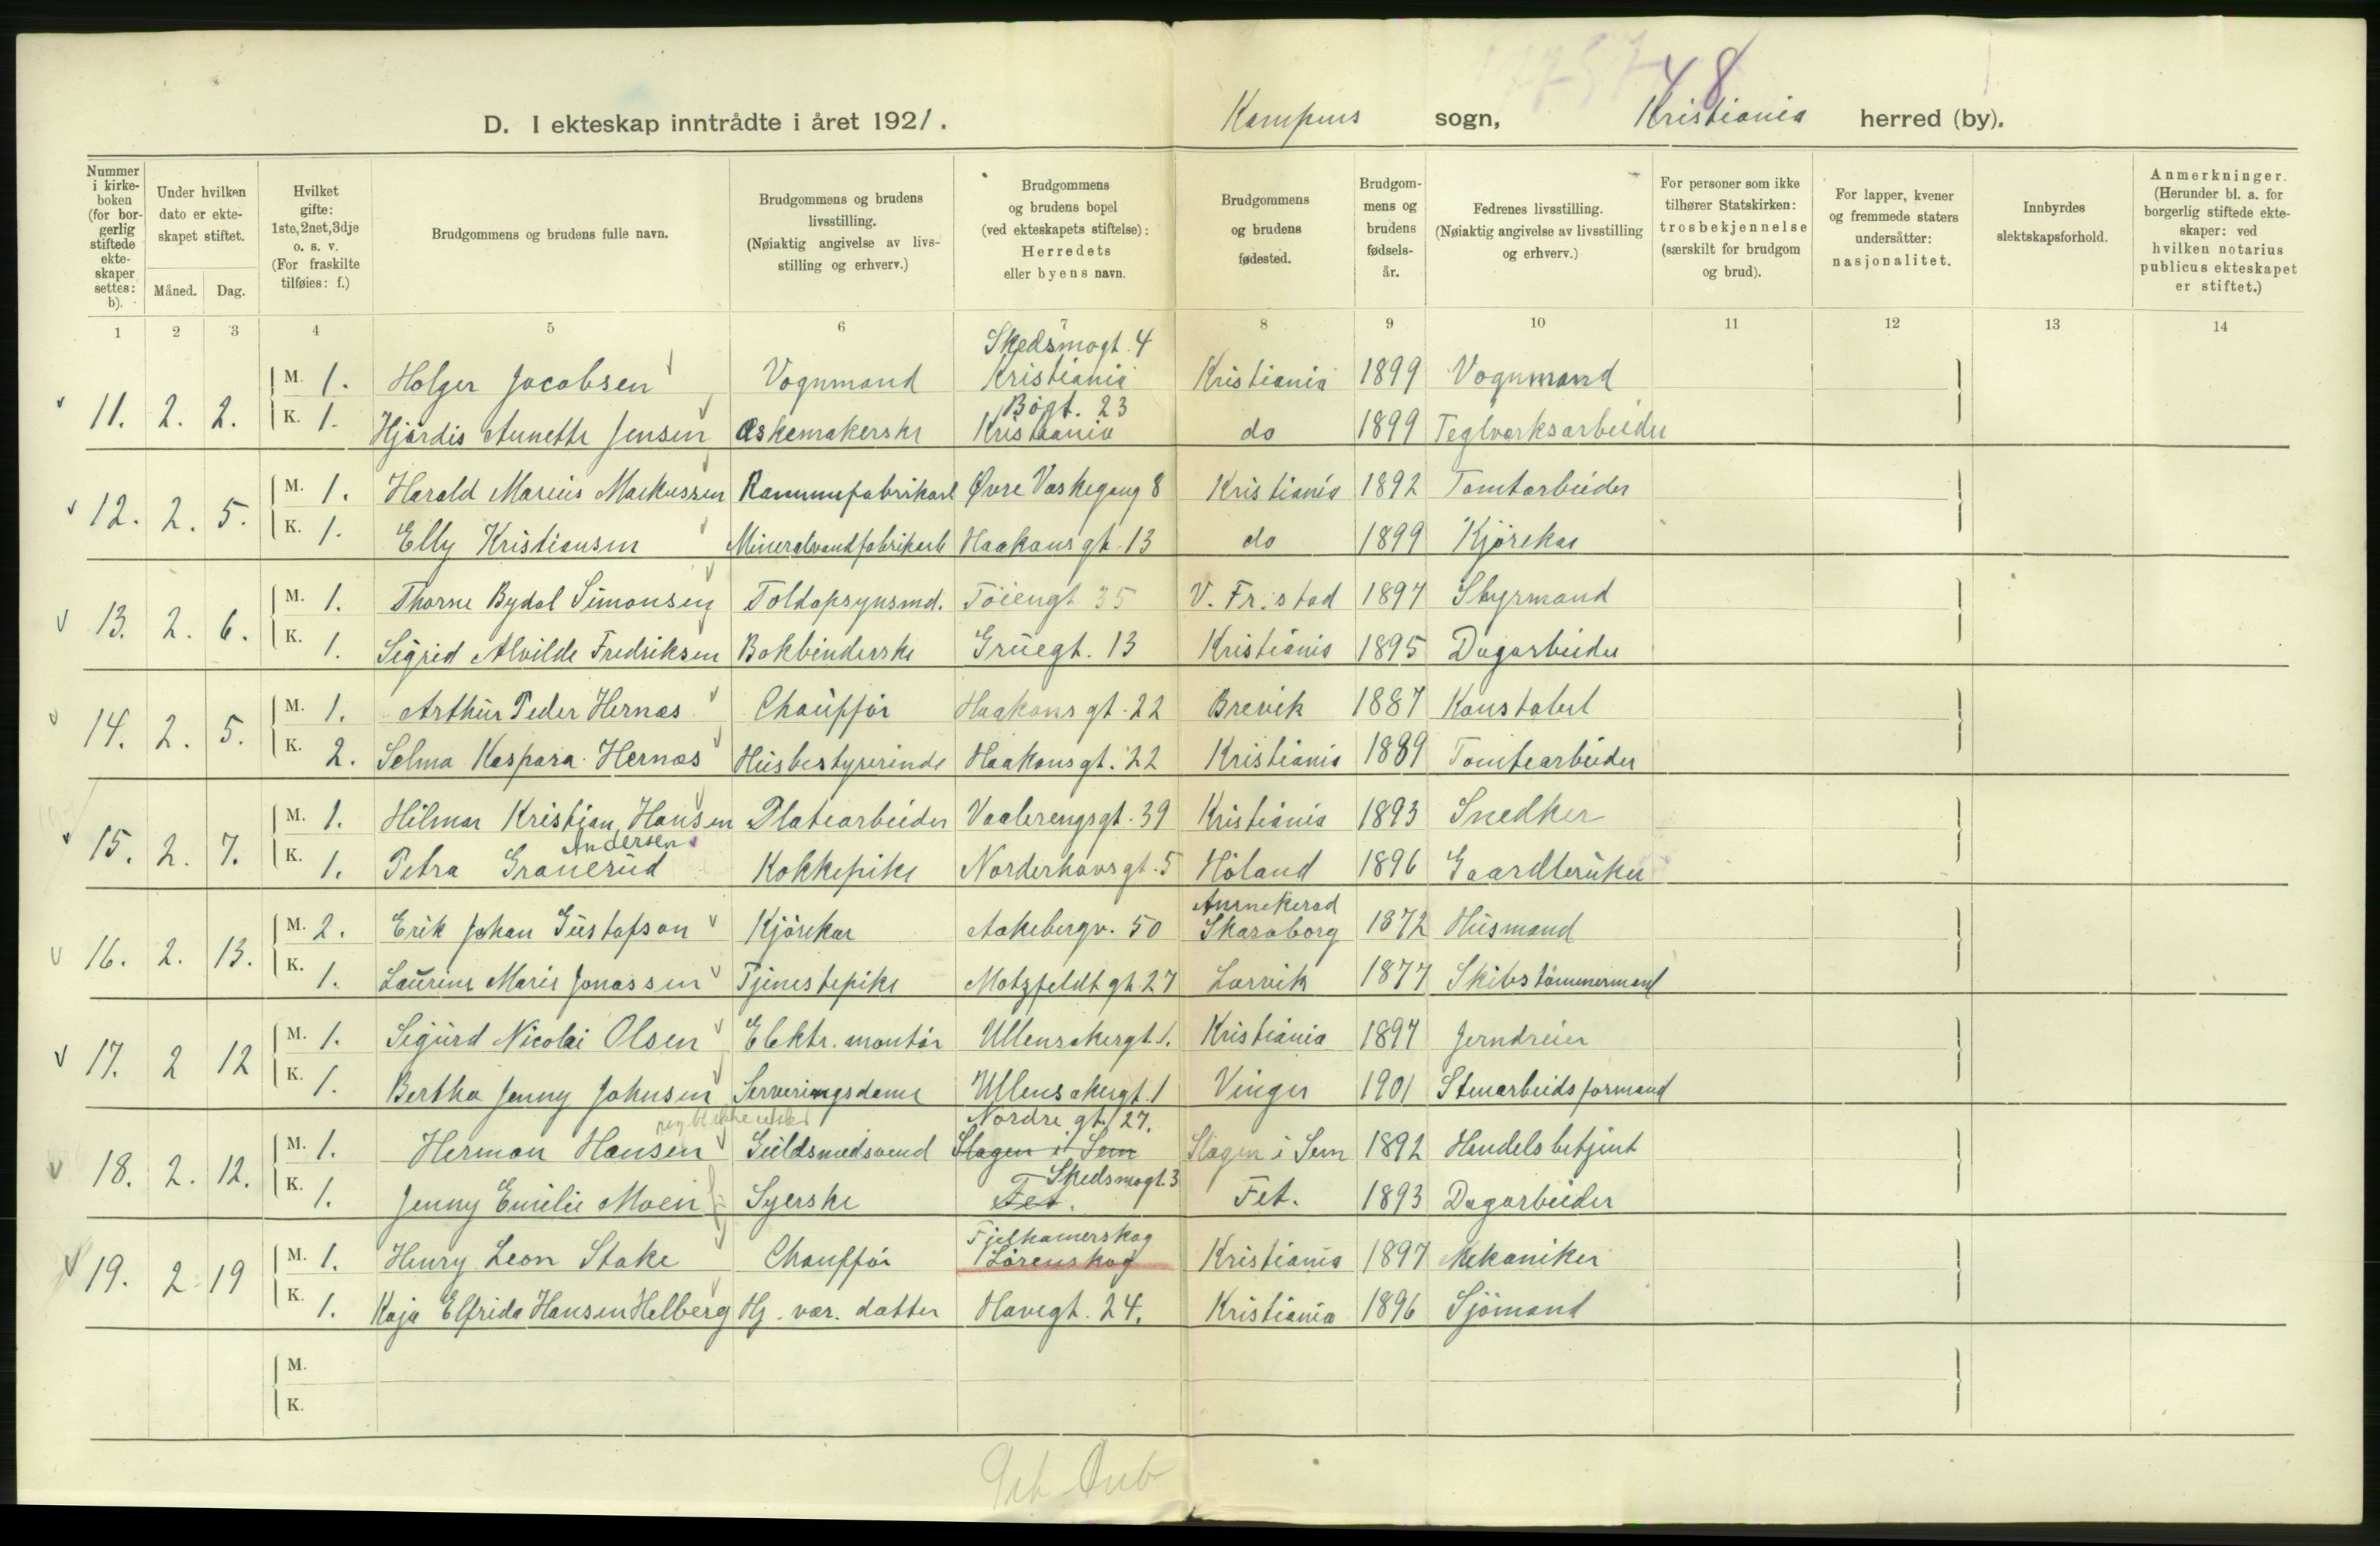 48
D. I ekteskap inntrådte i året 1921. Kampens sogn, Kristiania herred (by).
Nummer i kirkeboken (for borgerlig stiftede ekteskaper settes: b).
Under hvilken dato er ekteskapet stiftet.
Måned. Dag.
Hvilket gifte: 1ste, 2net, 3dje o. s. v. (For fraskilte tilføies: f.)
Brudgommens og brudens fulle navn.
Brudgommens og brudens livsstilling. (Nøiaktig angivelse av livsstilling og erhverv.)
Brudgommens og brudens bopel (ved ekteskapets stiftelse): Herredets eller byens navn.
Brudgommens og brudens fødested.
Brudgommens og brudens fødselsår.
Fedrenes livsstilling. (Nøiaktig angivelse av livsstilling og erhverv.)
For personer som ikke tilhører Statskirken: trosbekjennelse (særskilt for brudgom og brud).
For lapper, kvener og fremmede staters undersåtter: nasjonalitet.
Innbyrdes slektskapsforhold.
Anmerkninger. (Herunder bl. a. for borgerlig stiftede ekteskaper: ved hvilken notarius publicus ekteskapet er stiftet.)
1 2 3 4 5 6 7 8 9 10 11 12 13 14
Skedsmogt. 4
M. 1. Holger Jacobsen Vognmand Kristiania Kristiania 1899 Vognmand
11. 2. 2.
Bögt. 23
K. 1. Hjørdis Annette Jensen Æskemakerske Kristiania do 1899 Teglverksarbeider
M. 1. Harald Marius Markussen Rammefabrikarb Øvre Vaskegang 8 Kristiania 1892 Tomtarbeider
12. 2. 5.
K. 1. Elly Kristiansen Mineralvandfabrikarb Haakons gt. 13 do 1899 Kjørekar
M. 1. Thorne Bydal Simonsen Toldopsynsmd. Töiengt 35 V. Fr:stad 1897 Styrmand
13. 2. 6.
K. 1. Sigrid Alvilde Fredriksen Bokbinderske Grüegt. 13 Kristiania 1895 Dagarbeider
M. 1. Arthur Peder Hernæs Chauffør Haakons gt. 22 Brevik 1887 Konstabel
14. 2. 5.
K. 2. Selma Kaspara Hernæs Husbestyrerinde Haakons gt. 22 Kristiania 1889 Tomtearbeider
M. 1. Hilmar Kristian Hansen Platearbeider Vaalerengsgt. 39 Kristiania 1893 Snedker
15. 2. 7.
Andersen
K. 1. Petra Granerud Kokkepike Norderhovsgt. 5 Höland 1896 Gaardbruker
Skaraborg
M. 2. Erik Johan Gustafson Kjørekar Aakebergv. 50 1872 Husmand
16. 2. 13.
K. 1. Laurine Marie Jonassen Tjenestepike Motzfeldt gt. 27 Larvik 1877 Skibstømmermand
M. 1. Sigurd Nicolai Olsen Elektr. montør Ullensakergt. 1. Kristiania 1897 Jerndreier
17. 2 12
K. 1. Bertha Jenny Johnsen Serveringsdame Ullensakergt. 1 Vinger 1901 Stenarbeidsformand
Nordre gt. 27.
M. 1. Herman Hansen Guldsmedsvend Slagen i Sem Slagen i Sem 1892 Handelsbetjent
18. 2. 12.
Skedsmogt. 3
K. 1. Jenny Emilie Moen Syerske Fet. Fet. 1893 Dagarbeider
Fjelhamerskog
M. 1. Henry Leon Stake Chauffør Lørenskog Kristiania 1897 Mekaniker
19. 2 19
K. 1. Kaja Elfrida Hansen Helberg Hj. vær. datter Havegt. 24. Kristiania 1896 Sjömand
M.
K.